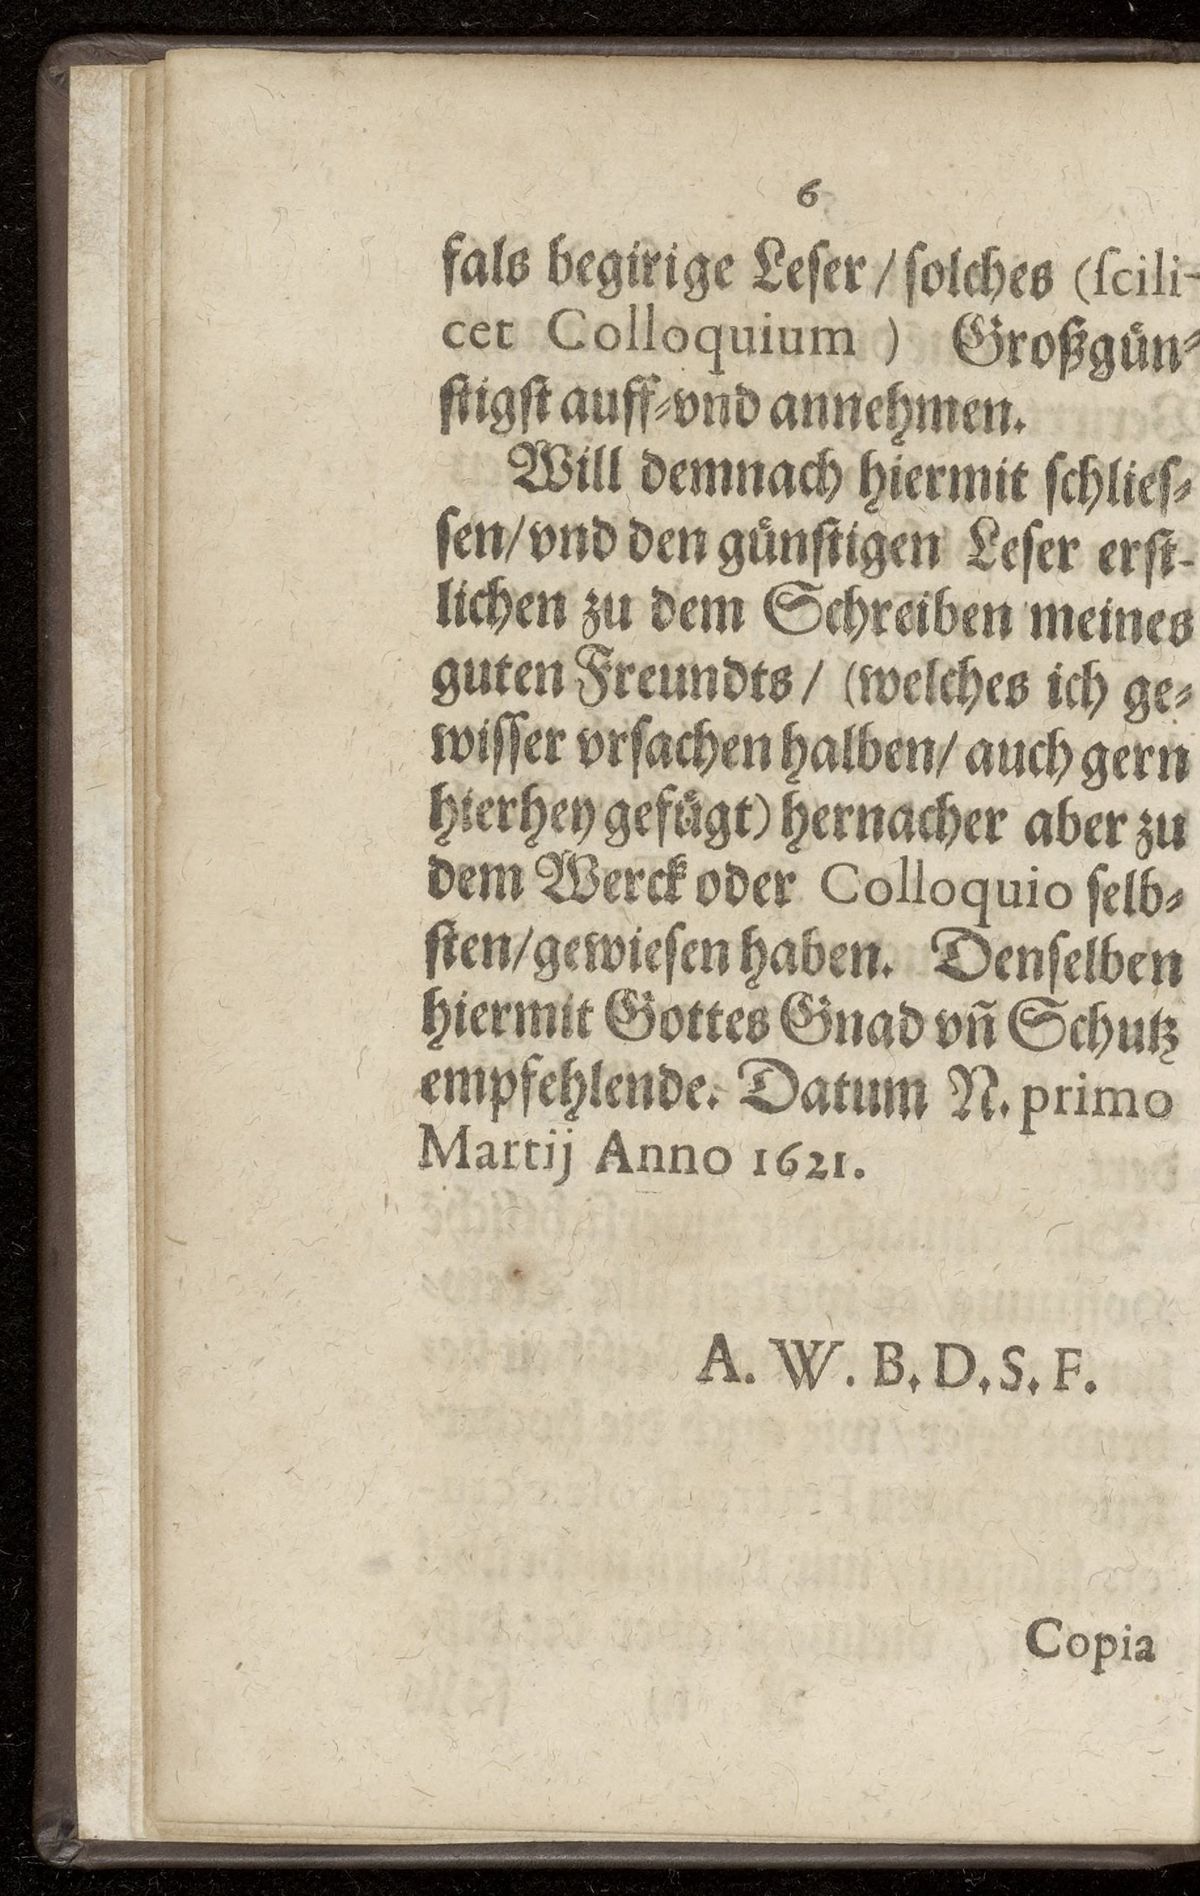 6
fals begirige Leſer / ſolches (ſcili-
cet Colloquium ) Großguͤn⸗
ſtigſt auff⸗vnd annehmen.
Will demnach hiermit ſchlieſ⸗
ſen/ vnd den guͤnſtigen Leſer erſt-
lichen zu dem Schreiben meines
guten Freundts / (welches ich ge⸗
wiſſer vrſachen halben/ auch gern
hierhey gefuͤgt) hernacher aber zu
dem Werck oder Colloquio ſelb⸗
ſten/ gewieſen haben. Denſelben
hiermit Gottes Gnad vñ Schutz
empfehlende. Datum N. primo
Martij Anno 1621.
A. W. B. D. S. F.
Copia